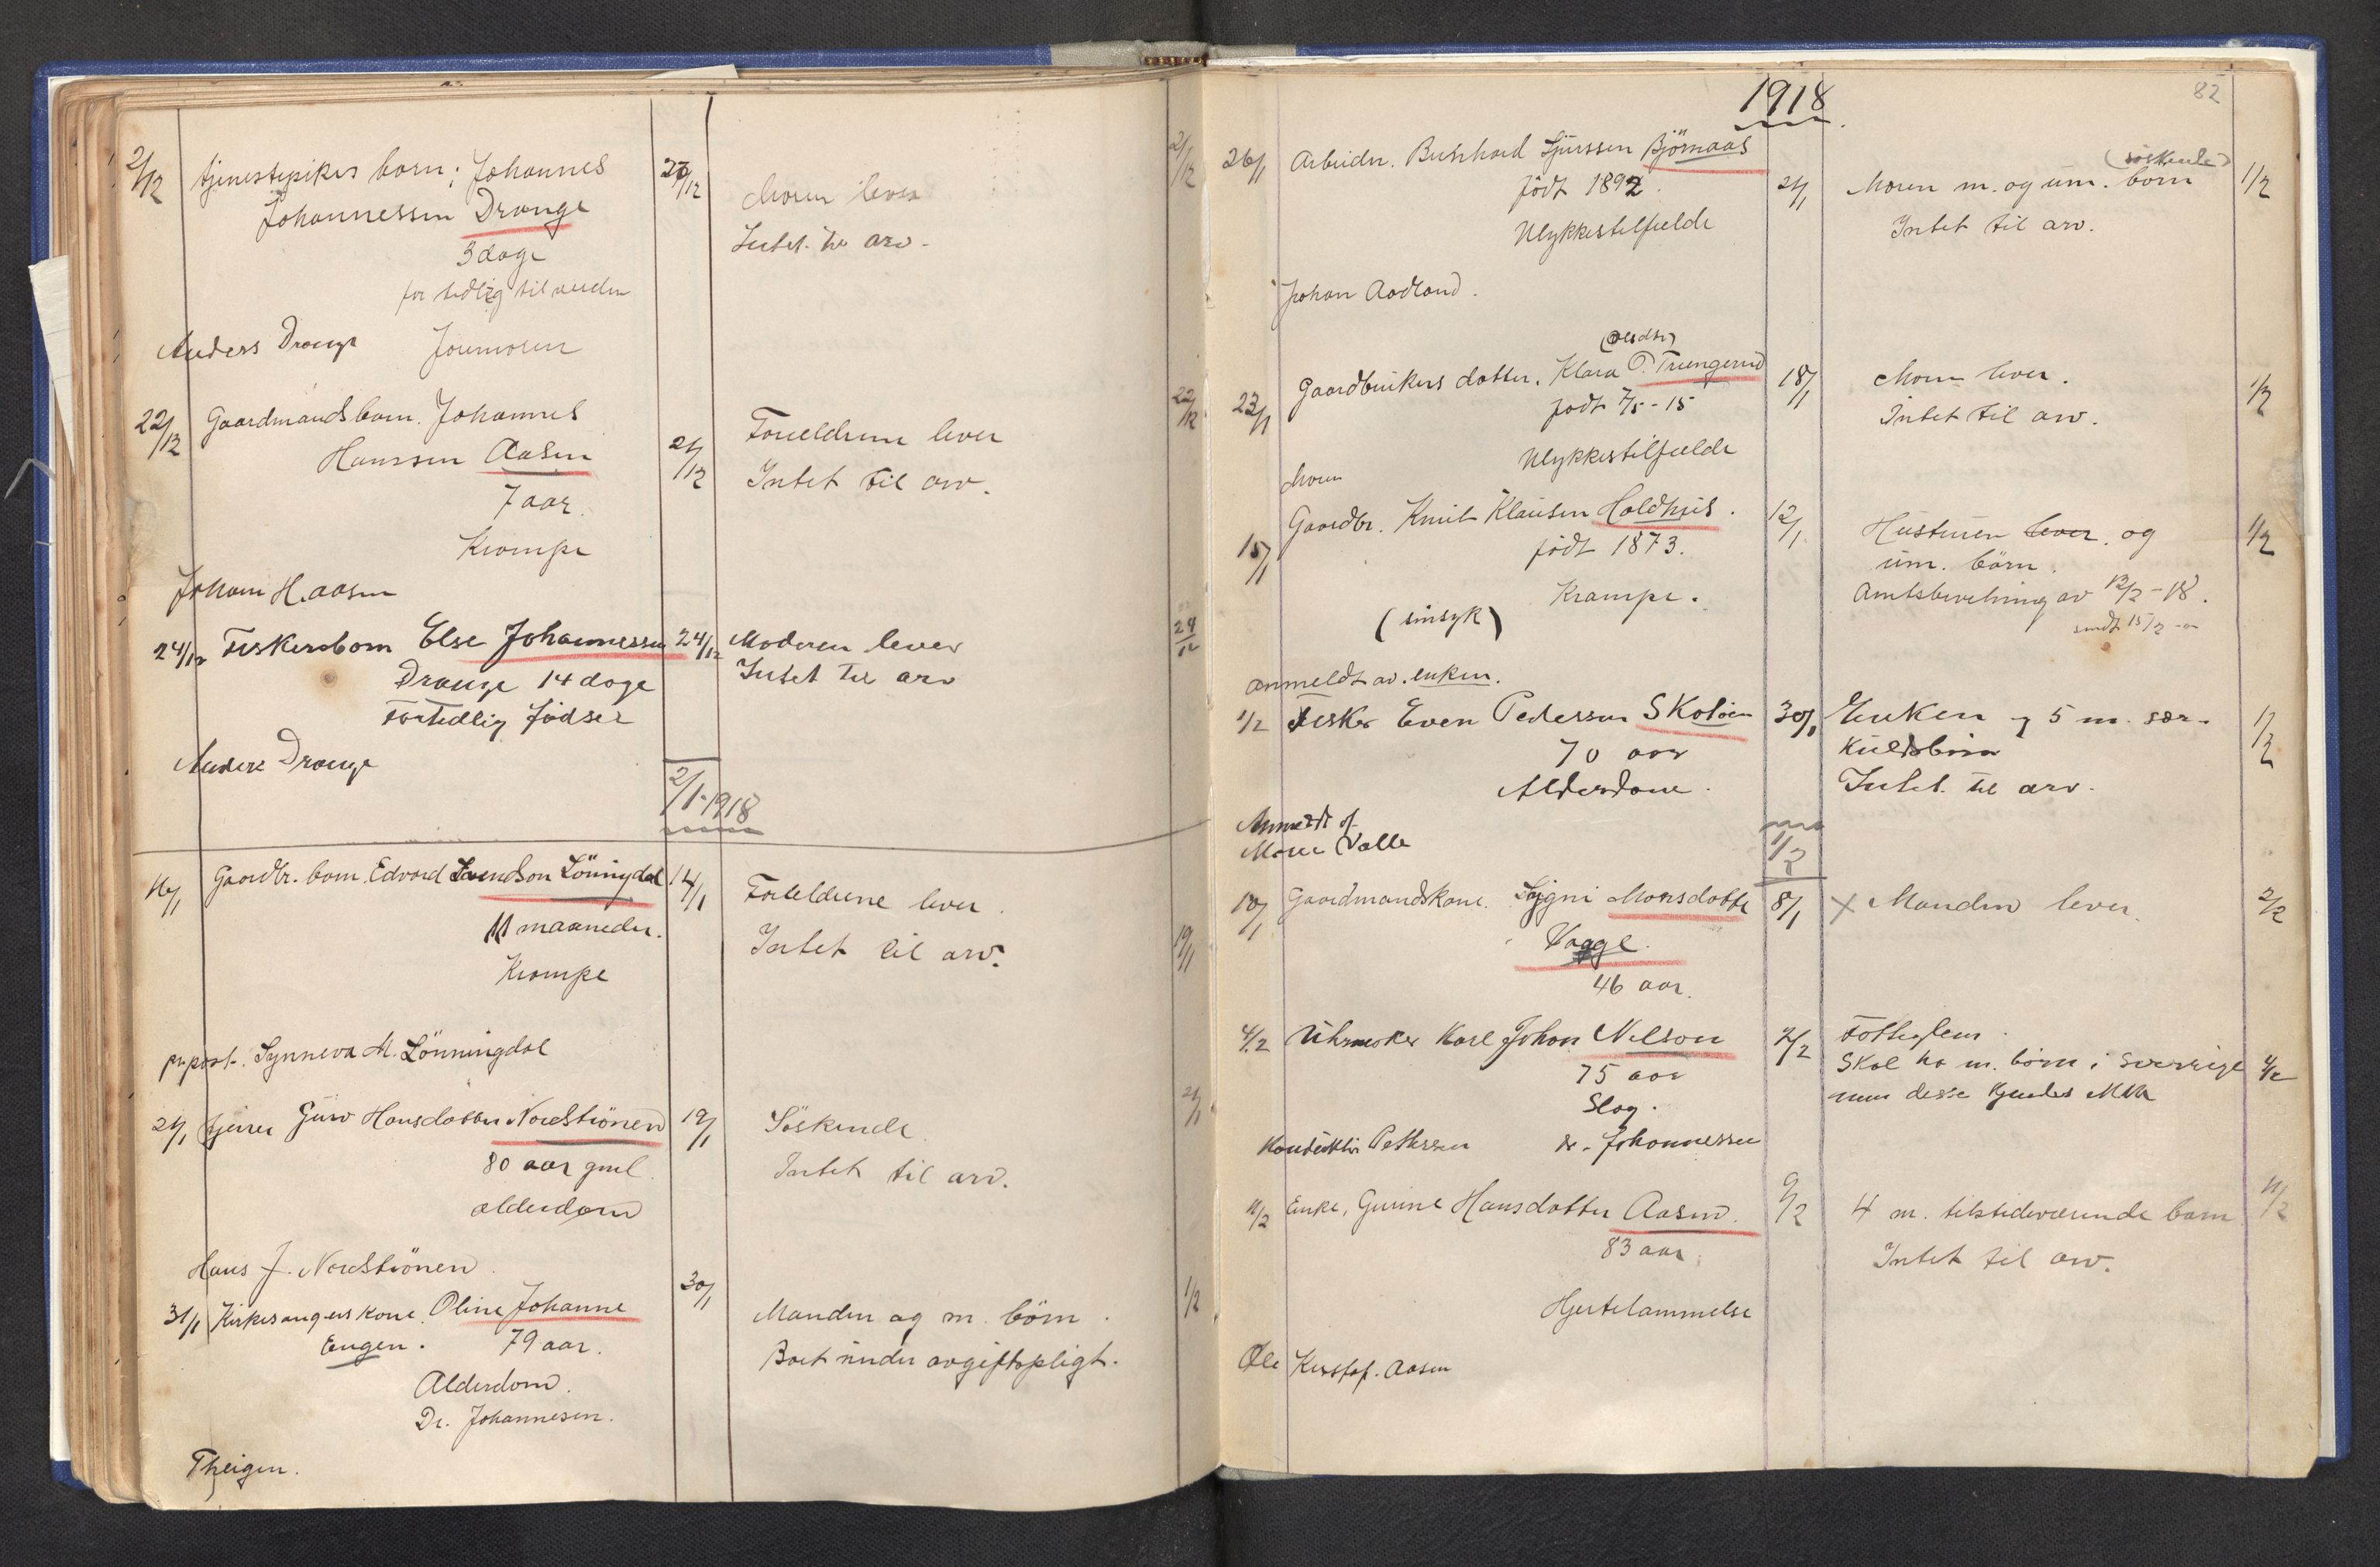 2/12 tjenestepikes barn; Johannes 20/12 21/12
Johannessen Drange Moren lever
3 dage Intet til arv.
for tidlig til verden
Anders Drange Jormoren
22/12 Gaardmandsbarn. Johannes 22/12
Hanssen Aasen 21/12 Forældrene lever
7 aar. Intet til arv.
Krampe
Johan H. Aasen
24/12 Fiskerbarn Else Johannessen 24/12 Moderen lever 24/12
Drange 14 dage Intet til arv
Fortidlig födsel
Anders Drange
2/1-1918
16/1 Gaardbr. barn. Edvard Svendson Lönningdal 14/1 Forældrene lever.
11 maaneder. Intet til arv. 19/1
Krampe
pr post. Synneva M. Lönningdal
21/1 Guro Hansdatter Nordströnen 19/1 Söskende. 21/1
80 aar gml. Intet til arv.
alderdom
Hans J. Nordströnen
31/1 Kirkesangers kone. Oline Johanne 30/1 Manden og m. börn. 1/2
Engen. 79 aar. Boet under avgiftspligt.
Alderdom.
Dr. Johannesen.
Theigen.
1918
82
26/1 Arbeider. Bernhard Sjurssen Björnaas (söskende)
född 1892. 21/1 Moren m. og um. barn 1/2
Ulykkestilfælde Intet til arv.
Johan Aadland.
(Pedsdtr)
23/1 Gaardbrukers datter. Klara P. Tuengerud 18/1 Moren lever. 1/2
född 7/5-15 Intet til arv.
Ulykkestilfælde
Moren
15/1 Gaardbr. Knut Klausen Holdhus. 12/1 Hustruen lever. og 1/2
född 1873. um. börn.
Krampe. Amtsbevilning av 12/2-18.
(sinsyk) sendt 15/2
anmeldt av. enken.
1/2 Fisker Even Pedersen Skotöen 30/1 Enken og 5 m. sær- 1/2
70 aar kuldsbörn
Alderdom. Intet til arv.
Anmeldt af
Mons Valle 1/2
10/1 Gaardmandskone. Sygni Monsdatter 8/1 x Manden lever. 2/2
Vaage.
46 aar.
4/2 Uhrmaker Karl Johan Nilson 2/2 Fattiglem.
75 aar Skal ha m. börn i Sverrige 4/2
Slag. men disse kjendes ikke
Konduktör Pettersen dr. Johannessen
11/2 Enke, Gurine Hansdatter Aasen. 9/2 4 m. tilstedeværende barn 11/2
83 aar. Intet til arv.
Hjertelammelse
Ole Kristof. Aasen